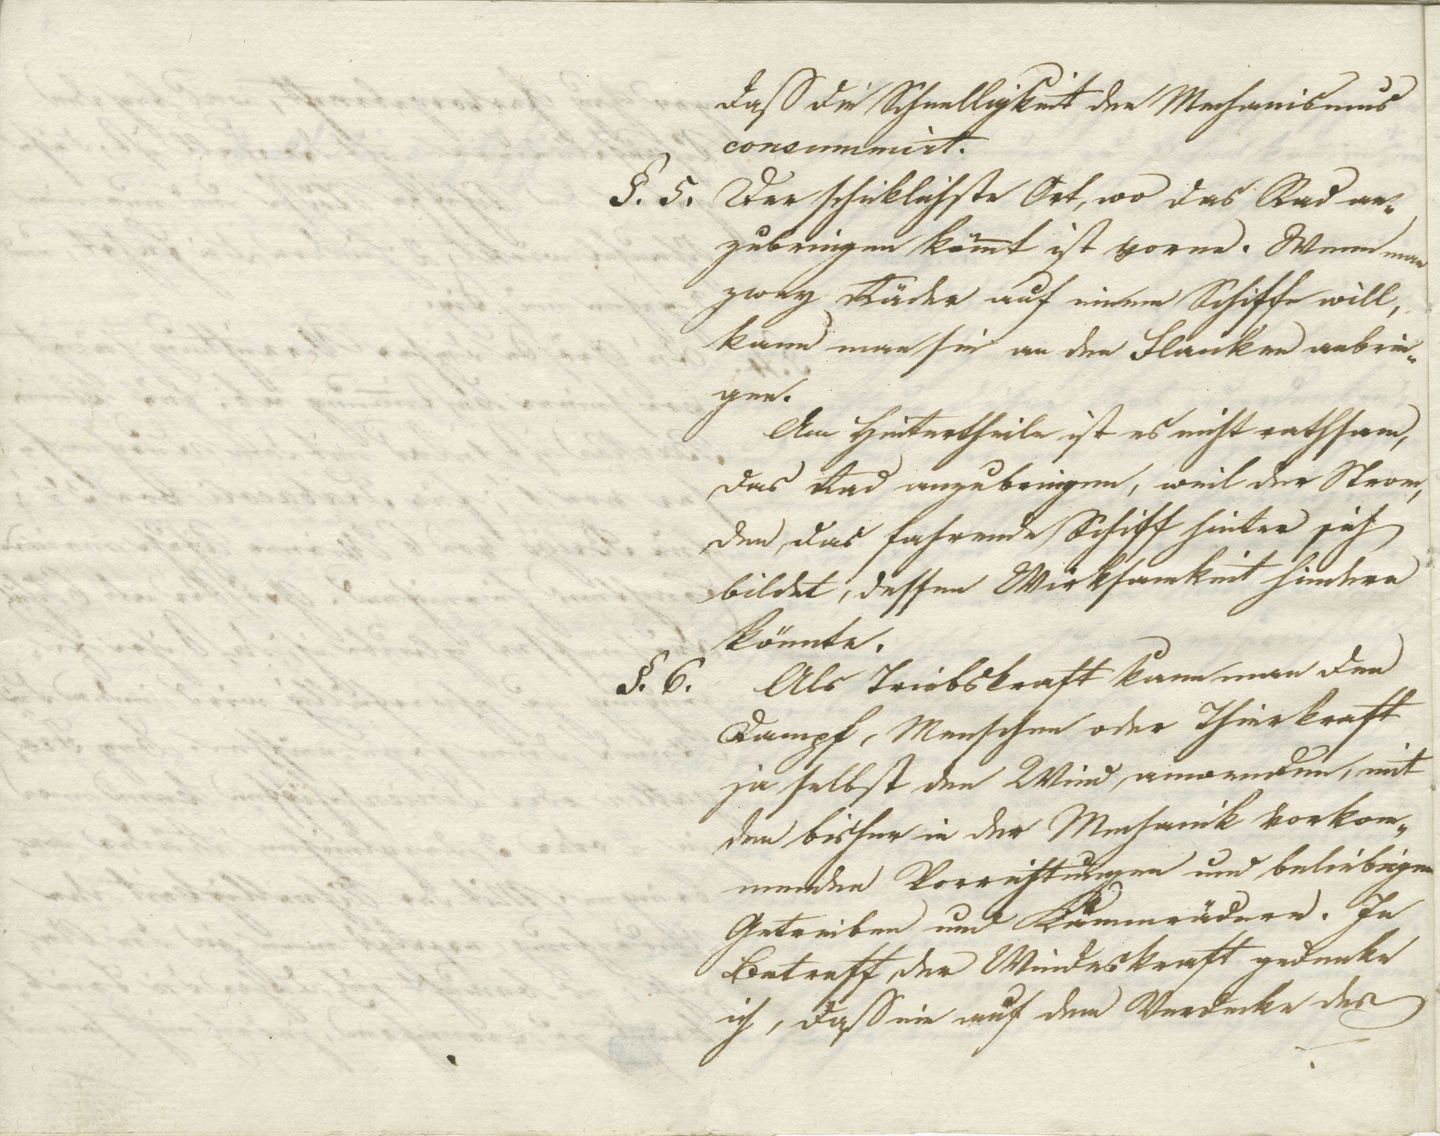 daß die Schnelligkeit den Mechanismus
consummirt.
§. 5. Der schicklichste Ort, wo das Rad an-
zubringen kömmt ist vorne. Wenn man
zwey Räder auf einem Schiffe will,
kann man sie an den Flanken anbrin-
gen.
Am Hintertheile ist es nicht rathsam,
das Rad anzubringen, weil der Strom,
den das fahrende Schiff hinter sich
bildet, dessen Wirksamkeit hindern
könnte.
§. 6. Als Triebskraft kann man den
Dampf, Menschen oder Thierkraft
ja selbst den Wind anwenden, mit
den bisher in der Mechanik vorkom-
menden Vorrichtungen und beliebigen
Getrieben und Kammrädern. In
Betreff der Windeskraft gedenke
ich, daß ein auf dem Verdecke des